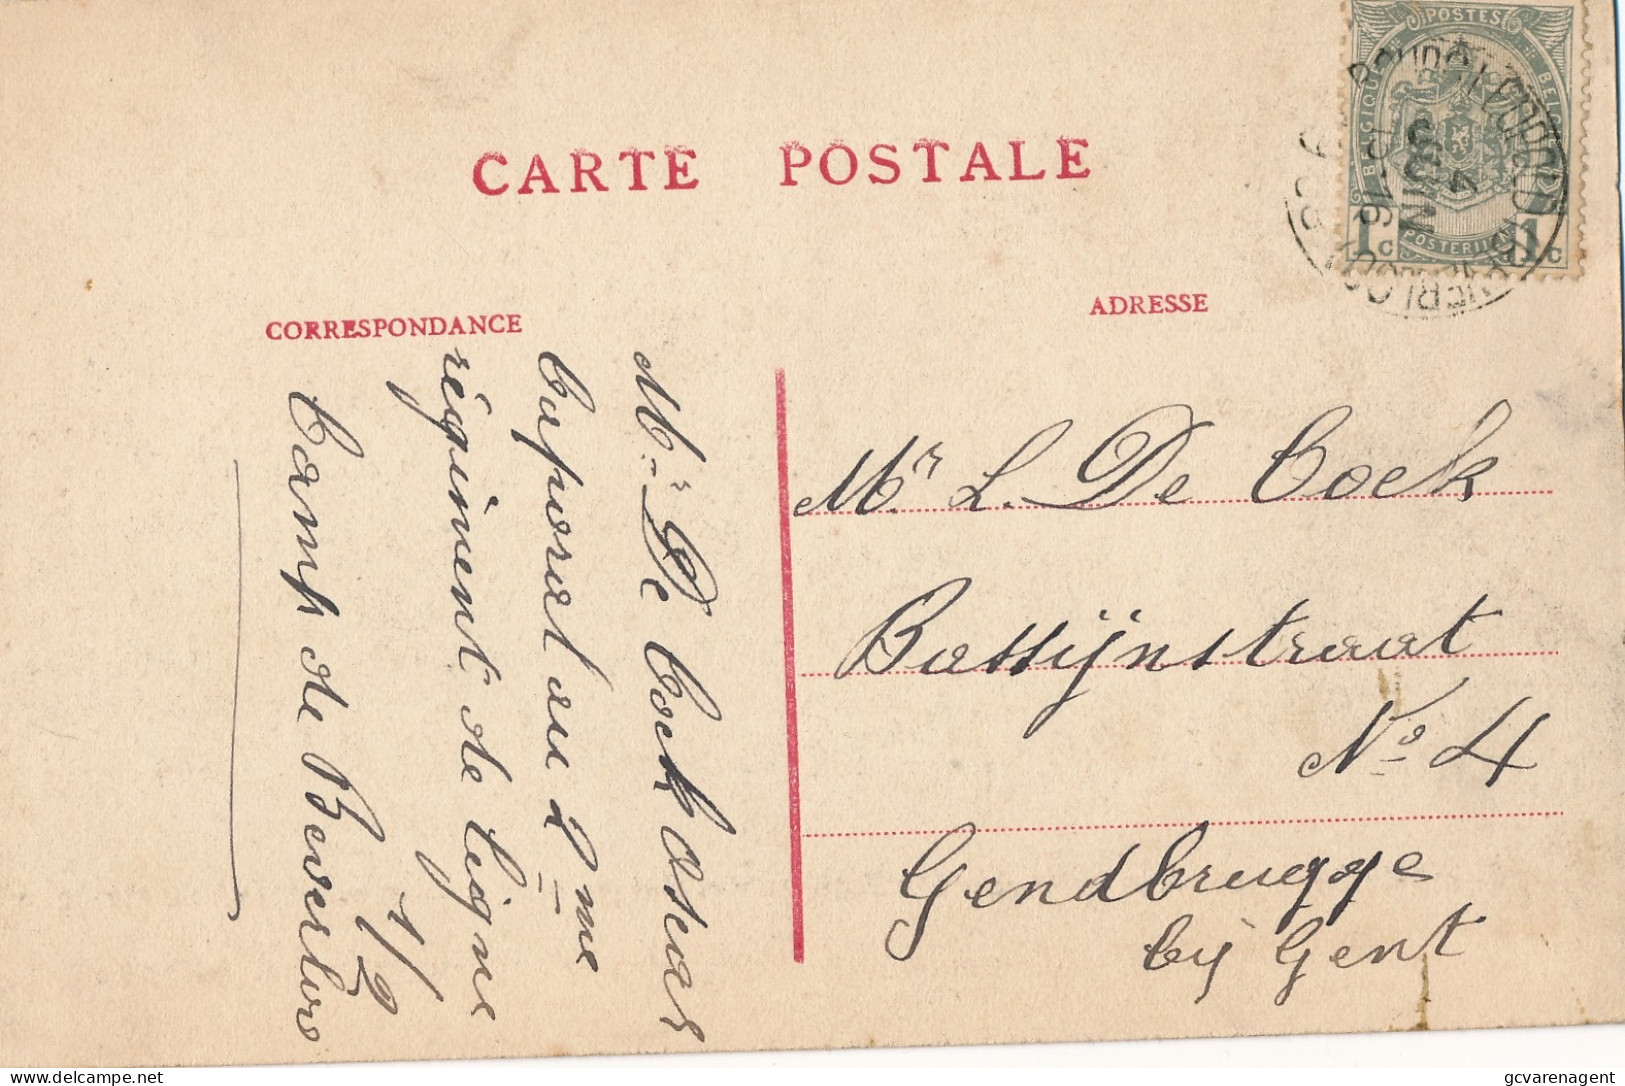 CARTE POSTALE
POSTES
BELGIQUE
1 c
1 c
CORRESPONDANCE
ADRESSE
Mr. De Cock Oscar
Caporal au 2me
régiment de ligne
1/2
Camp de Beverloo
Mr. L. De Cock
Bassijnstraat
No 4
Gendbrugge
bij Gent
delcampe.net
gcvarenagent